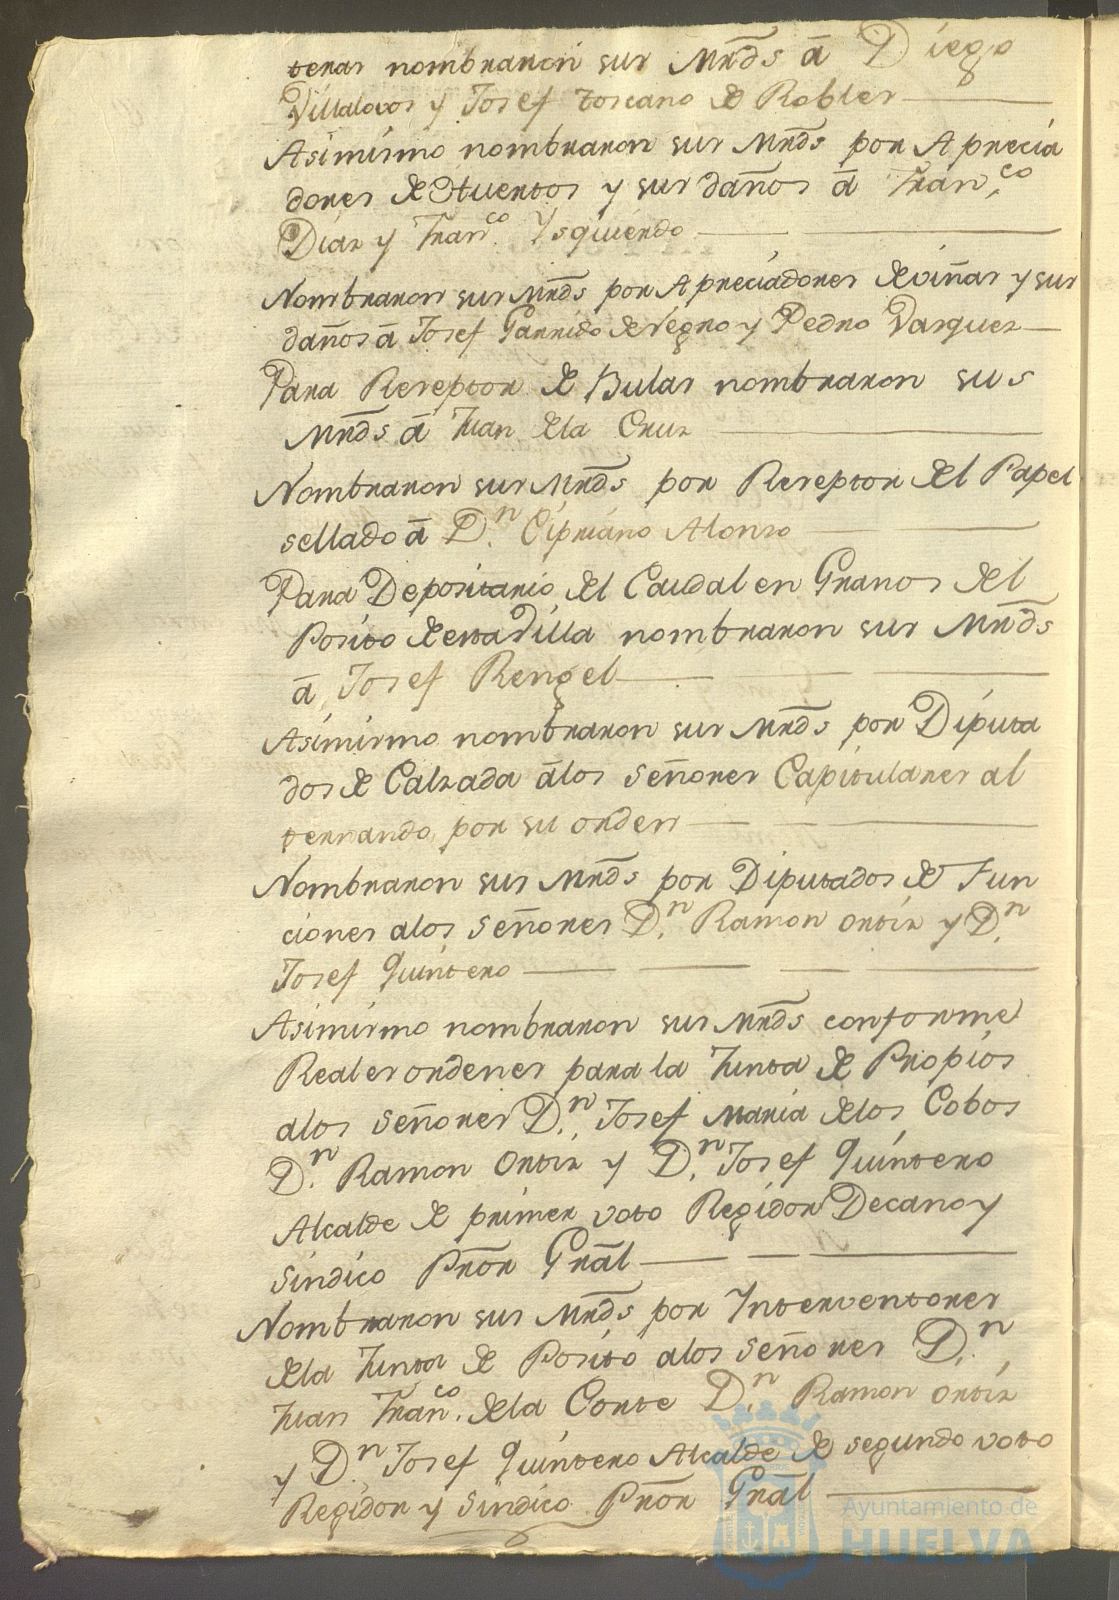 teras nombraron sus Mrds. â Diego
Villalovos y Josef toscano de Robles
Asimismo nombraron sus Mrds por Aprecia
dores de Huertos y sus daños â Fran.co
Diaz y Fran.co Ysquierdo
Nombraron sus Mrds por Apreciadores de viñas y sus
daños â Josef Garrido de Negro y Pedro Vasquez
Para Rezeptor de Bulas nombraron sus
Mrds â Juan dela Cruz
Nombraron sus Mrds por Rezeptor del Papel
sellado â D.n Cipriano Alonso
Para Depositario del Caudal en Granos del
Posito de esta Villa nombraron sus Mrds
â Josef Rengel
Asimismo nombraron sus Mrds por Diputa
dos de Calzada âlos señores Capitulares al
ternando por su orden
Nombraron sus Mrds por Diputados de Fun
ciones alos señores D.n Ramon Ortiz y D.n
Josef Quintero
Asimismo nombraron sus Mrds conforme
Reales ordenes para la Junta de Propios
alos señores D.n Josef Maria delos Cobos
D.n Ramon Ortiz y D.n Josef Quintero
Alcalde de primer voto Regidor Decano y
sindico Pror Gral
Nombraron sus Mrds por Interventores
dela Junta de Posito alos señores D.n
Juan Fran.co dela Corte D.n Ramon Ortiz
y D.n Josef Quintero Alcalde de segundo voto
Regidor y sindico Pror Gral
Ayuntamiento de
HUELVA